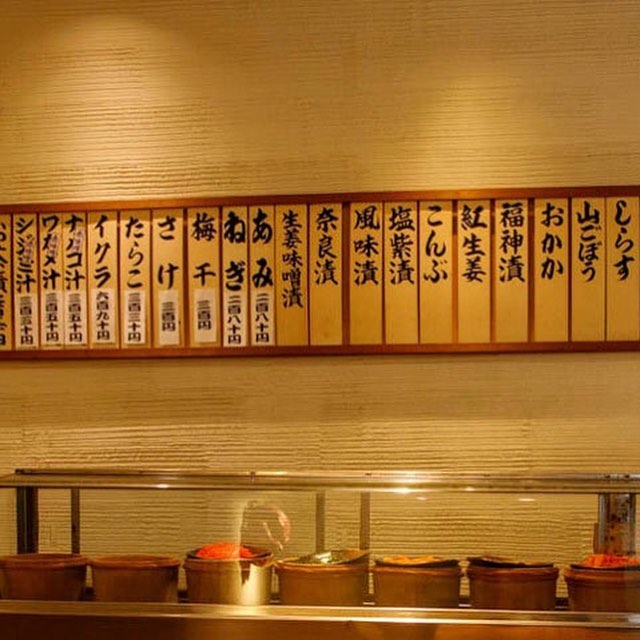 しらす
山ごぼう
おかか
福神漬
紅生姜
こんぶ
塩紫漬
風味漬
奈良漬
生姜味噌漬
あみ 二百八十円
ねぎ 二百八十円
梅干 三百円
さけ 三百円
たらこ 三百三十円
イクラ 六百九十円
ナメコ汁 三百五十円
ワカメ汁 三百三十円
シジミ汁 三百三十円